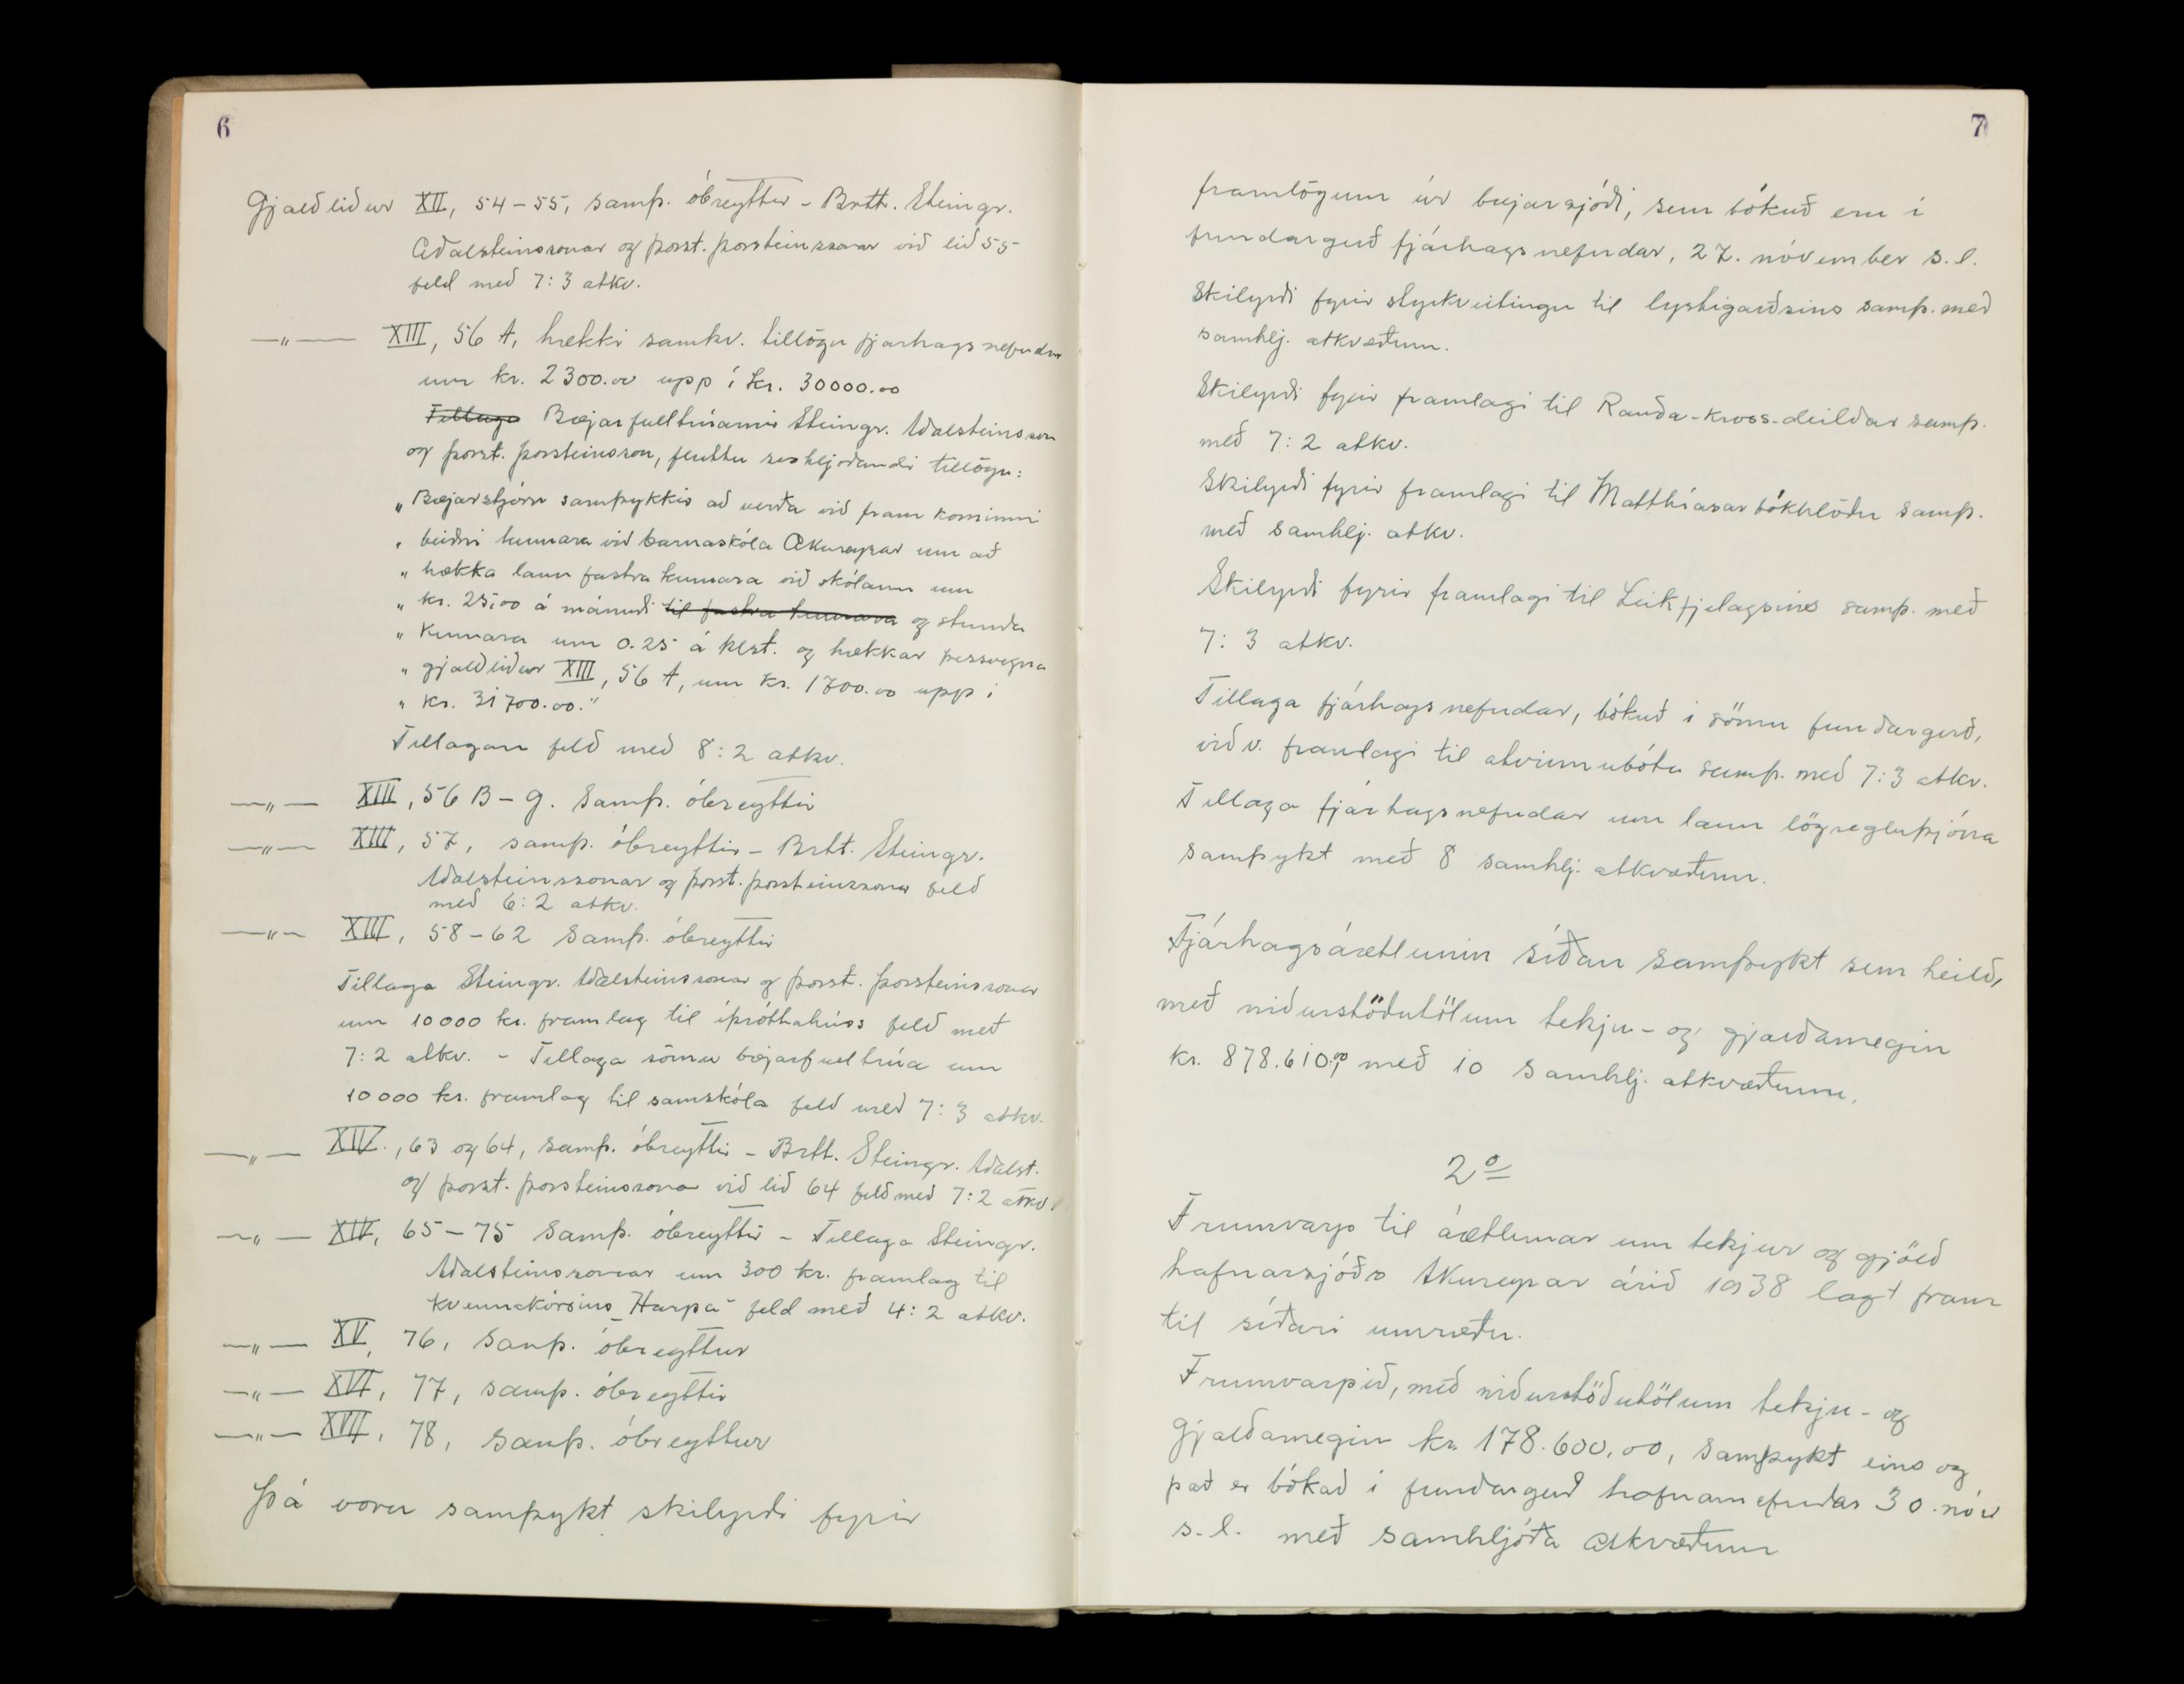 6
Gjaldliður XII, 54-55, samþ. óbreyttir - Brtt. Steingr.
Aðalsteinssonar og Þorst. Þorsteinssonar við lið 55
feld með 7:3 atkv.
—„— XIII, 56 A, hækki samkv. tillögu fjárhagsnefndar
um kr. 2300.00 upp í kr. 30000.00
Tillaga Bæjarfulltrúarnir Steingr. Aðalsteinsson
og Þorst. Þorsteinsson, fluttu svohljóðandi tillögu:
„Bæjarstjórn samþykkir að verða við fram kominni
„ beiðni kennara við barnaskóla Akureyrar um að
„ hækka laun fastra kennara við skólann um
„ kr. 25.00 á mánuði til fastra kennara og stunda
„ kennara um 0.25 á klst. og hækkar þessvegna
„ gjaldliður XIII, 56 A, um kr. 1700.00 upp í
„ kr. 31700.00."
Tillagan feld með 8:2 atkv.
—„— XIII, 56 B - G. Samþ. óbreyttir
—„— XIII, 57, samþ. óbreyttir - Brtt. Steingr.
Aðalsteinssonar og Þorst. Þorsteinssonar feld
með 6:2 atkv.
—„— XIII, 58-62 Samþ. óbreyttir
Tillaga Steingr. Aðalsteinssonar og Þorst. Þorsteinssonar
um 10000 kr. framlag til íþróttahúss feld með
7:2 atkv. - Tillaga sömu bæjarfulltrúa um
10000 kr. framlag til samskóla feld með 7:3 atkv.
—„— XIV., 63 og 64, samþ. óbreyttir - Brtt. Steingr. Aðalst.
og Þorst. Þorsteinssonar við lið 64 feld með 7:2 atkv.
—„— XIV, 65-75 Samþ. óbreyttir - Tillaga Steingr.
Aðalsteinssonar um 300 kr. framlag til
kvennakórsins „Harpa" feld með 4:2 atkv.
—„— XV, 76, Samþ. óbreyttur
—„— XVI, 77, samþ. óbreyttir
—„— XVII, 78, samþ. óbreyttur
Þá voru samþykt skilyrði fyrir
7
framlögum úr bæjarsjóði, sem bókuð eru í
fundargerð fjárhagsnefndar, 27. nóvember s.l.
Skilyrði fyrir styrkveitingu til lystigarðsins samþ. með
samhlj. atkvæðum.
Skilyrði fyrir framlagi til Rauða-kross-deildar samþ.
með 7:2 atkv.
Skilyrði fyrir framlagi til Matthíasarbókhlöðu samþ.
með samhlj. atkv.
Skilyrði fyrir framlagi til Leikfjelagsins samþ. með
7:3 atkv.
Tillaga fjárhagsnefndar, bókuð í sömu fundargerð,
viðv. framlagi til atvinnubóta samþ. með 7:3 atkv.
Tillaga fjárhagsnefndar um laun lögregluþjóna
samþykt með 8 samhlj. atkvæðum.
Fjárhagsáætlunin síðan samþykt sem heild,
með niðurstöðutölum tekju- og gjaldamegin
kr. 878.610.00, með 10 samhlj. atkvæðum.
2º
Frumvarp til áætlunar um tekjur og gjöld
hafnarsjóðs Akureyrar árið 1938 lagt fram
til síðari umræðu.
Frumvarpið, með niðurstöðutölum tekju- og
gjaldamegin kr. 178.600.00, samþykt eins og
það er bókað í fundargerð hafnarnefndar 30. nóv
s.l. með samhljóða atkvæðum